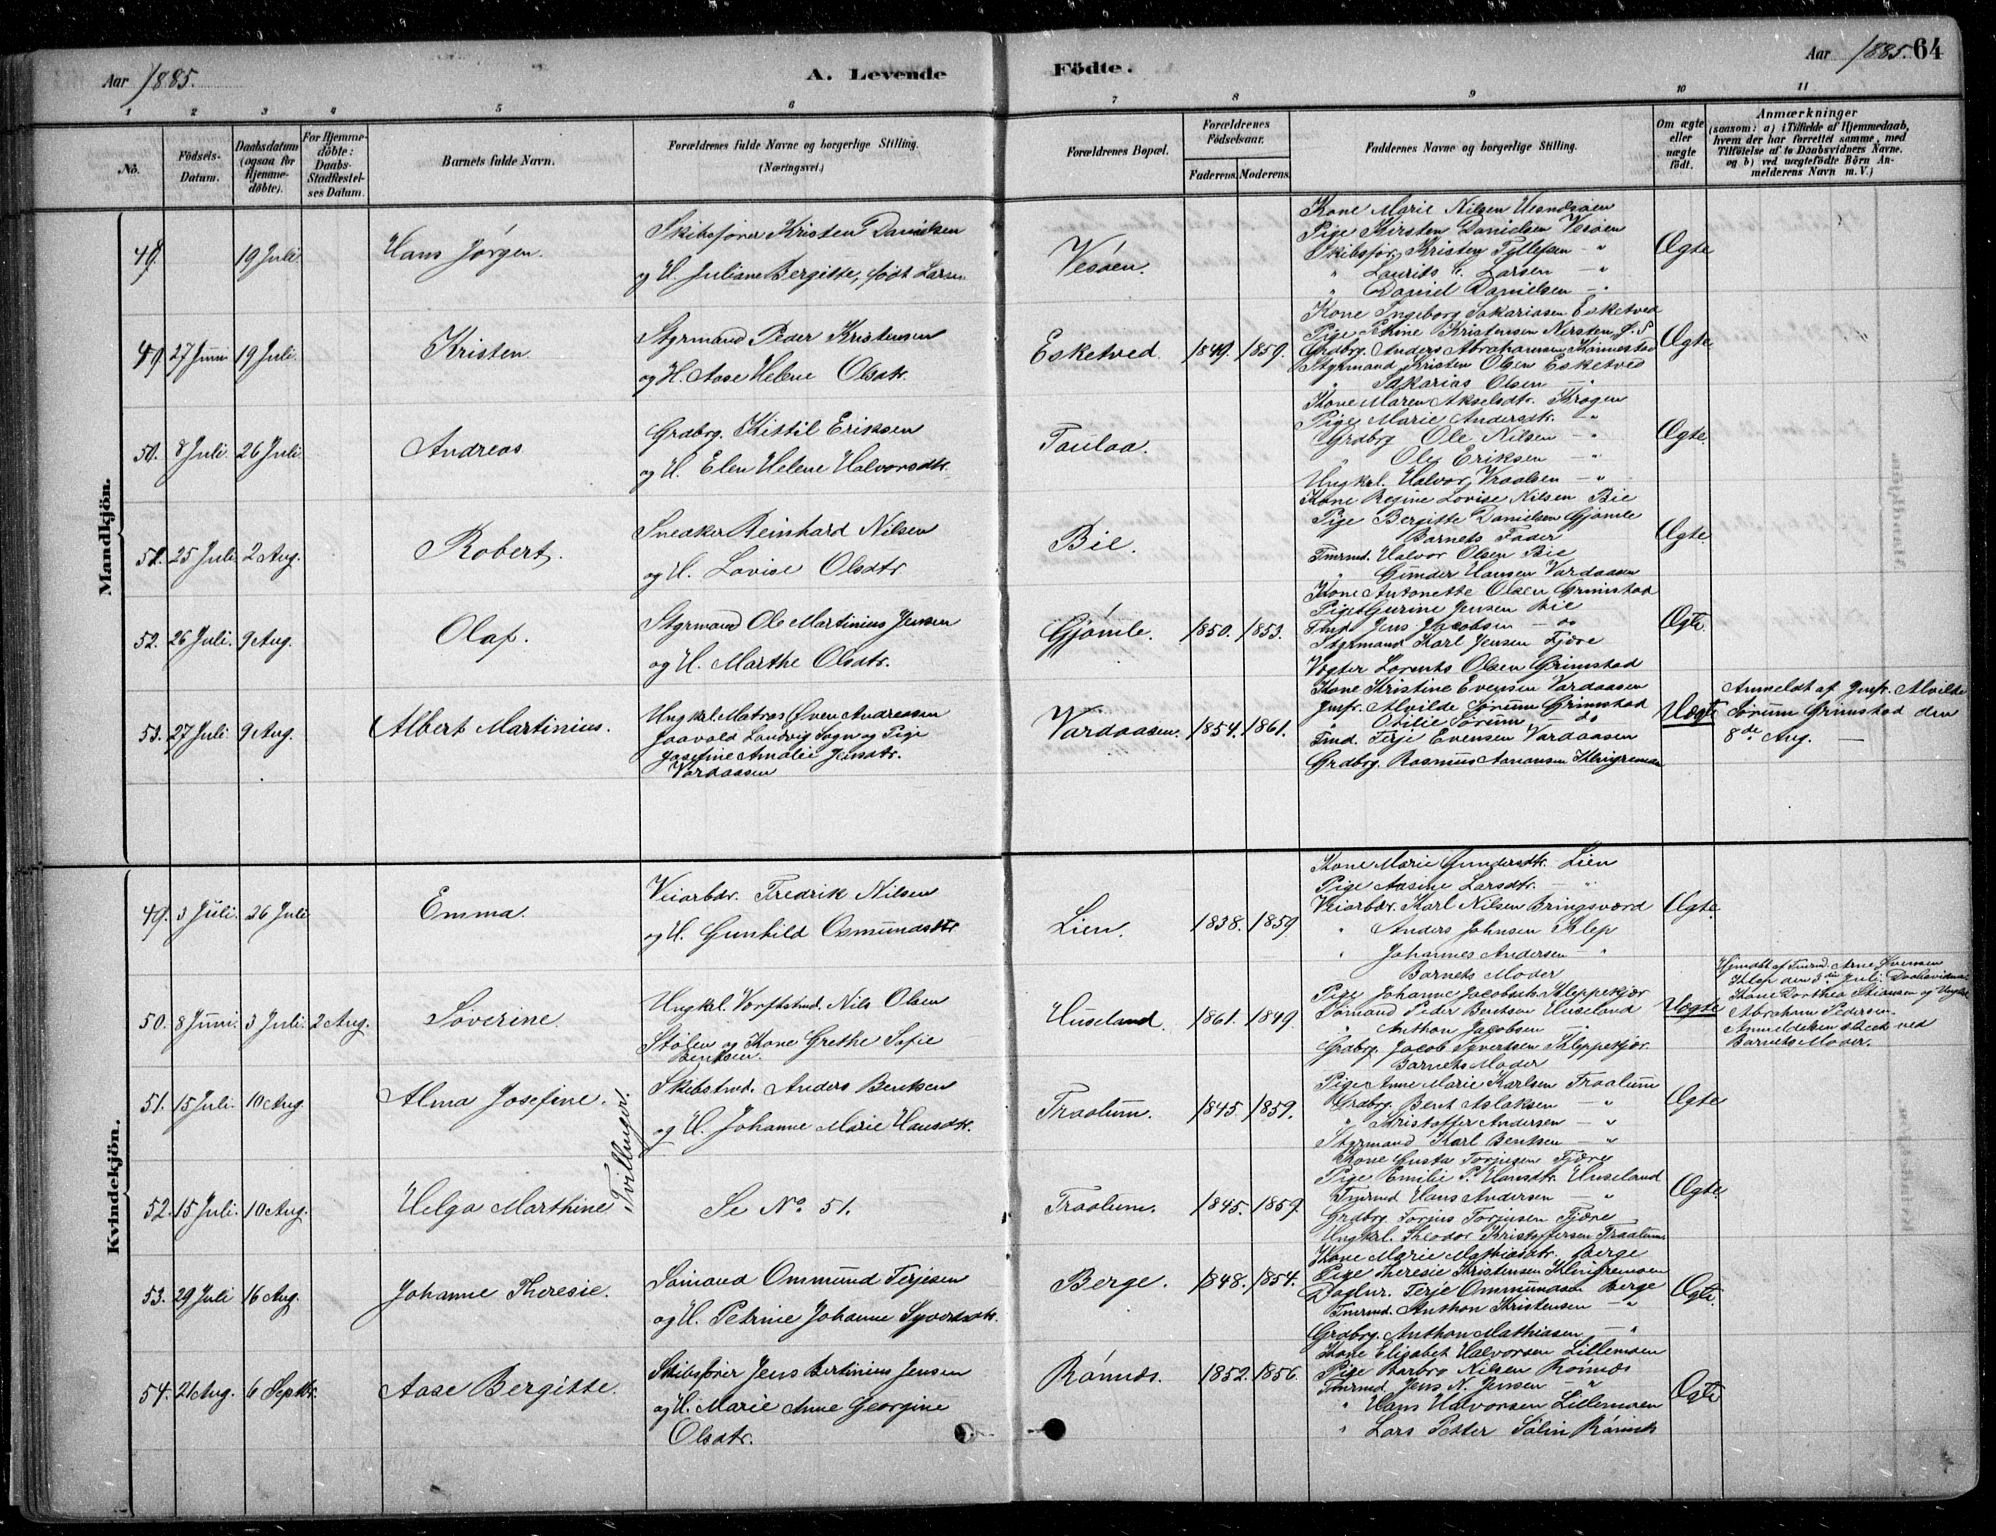 Aar 1885.
A. Levende Födte.
Aar 1885. 64
1 2 3 4 5 6 7 8 9 10 11
No.
Födsels-Datum.
Daabsdatum (ogsaa for Hjemmedöbte).
For Hjemmedöbte: Daabs-Stadfæstelses Datum.
Barnets fulde Navn.
Forældrenes fulde Navne og borgerlige Stilling. (Næringsvei.)
Forældrenes Bopæl.
Forældrenes Födselsaar.
Faderens. Moderens.
Faddernes Navne og borgerlige Stilling.
Om ægte eller uægte födt.
Anmærkninger
(saasom: a) i Tilfælde af Hjemmedaab, hvem der har forrettet samme, med Tilföielse af to Daabsvidners Navne. og b) ved uægtefödte Börn Anmelderens Navn m. V.)
Mandkjön.
48. 19 Juli Hans Jørgen.
Skibsfører Kristen Danielsen
og H. Juliane Bergitte, født Larsen
Vesøen.
Kone Marie Nilsen
Pige Kirsten Danielsen Vesøen
Skibsfør. Kristen Tellefsen — "
" Laurits C. Larsen — "
" Daniel Danielsen — "
Ægte
49. 27 Juni 19 Juli. Kristen.
Styrmand Peder Kristensen
og H. Aase Helene Olsdtr.
Esketved. 1849. 1859.
Kone Ingeborg Sakariasen Esketved
Pige Petrine Kristensen
Grdbrg. Anders Abrahamsen
Styrmand Kristen Olsen Esketved
" Sakarias Olsen — "
Ægte
50. 8 Juli. 26 Juli. Andreas
Grdbrg. Kittil Eriksen
og H. Elen Helene Halvorsdtr.
Taulaa.
Kone Maren Akselsdtr. Krogen
Pige Marie Andersdtr. — "
Grdbrg Ole Nilsen — "
" Ole Eriksen — "
Ungkrl. Halvor Vraalsen — "
Ægte.
51. 25 Juli 2 Aug. Robert.
Snedker Reinhard Nilsen
og H. Lovise Olsdtr
Bie.
Kone Regine Lovise Nilsen Bie
Pige Bergitte Danielsen Gjømle
Barnets Fader
Tmrmd. Halvor Olsen Bie
" Gunder Hansen Vardaasen
Ægte.
52. 26 Juli. 9 Aug. Olaf.
Styrmand Ole Martinius Jensen
og H. Marthe Olsdtr.
Gjømle. 1850. 1853.
Kone Antonette Olsen Grimstad
Pige Gurine Jensen Bie
Tmd. Jens Jacobsen — do
Styrmand Karl Jensen Fjære
Vogter Lorents Olsen Grimstad
Ægte.
53. 27 Juli 9 Aug. Albert Martinius.
Ungkrl. Matros Even Andreasen
Jaavold Landvig Sogn og Pige
Josefine Amalie Jensdtr.
Vardaasen
Vardaasen. 1854. 1861.
Kone Kristine Evensen Vardaasen
Jmfr. Alvilde Sørum Grimstad
Otilie Sørum — do
Tmd. Terje Evensen Vardaasen
Grdbrg. Rasmus Aanonsen Klingremoen
Uægte
Anmeldt af Jmfr. Alvilde
Sørum Grimstad den
8de Aug.
Kvindekjön.
49. 3 Juli. 26 Juli Emma.
Veiarbdr. Fredrik Nilsen
og H. Gunhild Osmundsdtr
Lien. 1838. 1859
Kone Marie Gundersdtr. Lien
Pige Aasine Larsdtr. — "
Veiarbdr. Karl Nilsen Bringsværd
" Anders Johnsen Klep
" Johannes Andersen — "
Barnets Moder
Ægte.
50. 8 Juni. 3 Juli. 2 Aug. Søverine.
Ungkl. Nils Olsen
Stølen og Kone Grethe Sofie
Bentsen.
Huseland. 1861. 1849.
Pige Johanne Jacobsdtr. Kleppekjær
Sømand Peder Bentsen Huseland
" Anthon Jacobsen — "
Grdbrg. Jacob Syvertsen Kleppekjær.
Barnets Moder
Uægte
Hjmdøbt af Tmrmd. Arne Evensen
Klep den 3die Juli. Daabsvidner
Kone Dorthea Stiansen og Ungkrl.
Abraham Pedersen
Anmeldelsen skeet ved
Barnets Moder.
51. 15 Juli. 10 Aug. Alma Josefine.
Tvillinger.
Skibstmd. Anders Bentsen
og H. Johanne Marie Hansdtr.
Traalum. 1845. 1859.
Pige Anne Marie Karlsen Traalum
Grdbrg. Bent Aslaksen — "
" Kristoffer Andersen — "
Styrmand Karl Bentsen — "
Ægte
52. 15 Juli. 10 Aug. Helga Marthine
Se No. 51.
Traalum. 1845. 1859.
Kone Gusta Torjusen Fjære
Pige Emilie P. Hansdtr. Huseland
Tmrmd Hans Andersen — "
Grdbrg Torjus Torjusen Fjære
Ungkrl. Theodor Kristoffersen Traalum.
Ægte.
53. 29 Juli 16 Aug. Johanne Theresie.
Sømand Ommund Terjesen
og H. Petrine Johanne Syvertsdtr.
Berge. 1848. 1854.
Kone Marie Mathiasdtr. Berge
Pige Theresie Kristensen Klingremoen
Daglnr. Terje Ommundsen Berge
Tmrmd. Anthon Kristensen — "
Grdbrg. Anthon Mathiasen — "
Ægte.
54. 21 Aug. 6 Septbr. Aase Bergitte.
Skibsfører Jens Bertinius Jensen
og H. Marie Anne Georgine
Olsdtr.
Rønnes. 1852. 1856.
Kone Elisabet Halvorsen Lillemoen
Pige Barbro Nilsen Rønnes
Tmrmd. Jens N. Jensen — "
" Hans Halvorsen Lillemoen
" Lars Petter Salin Rønnes
Ægte